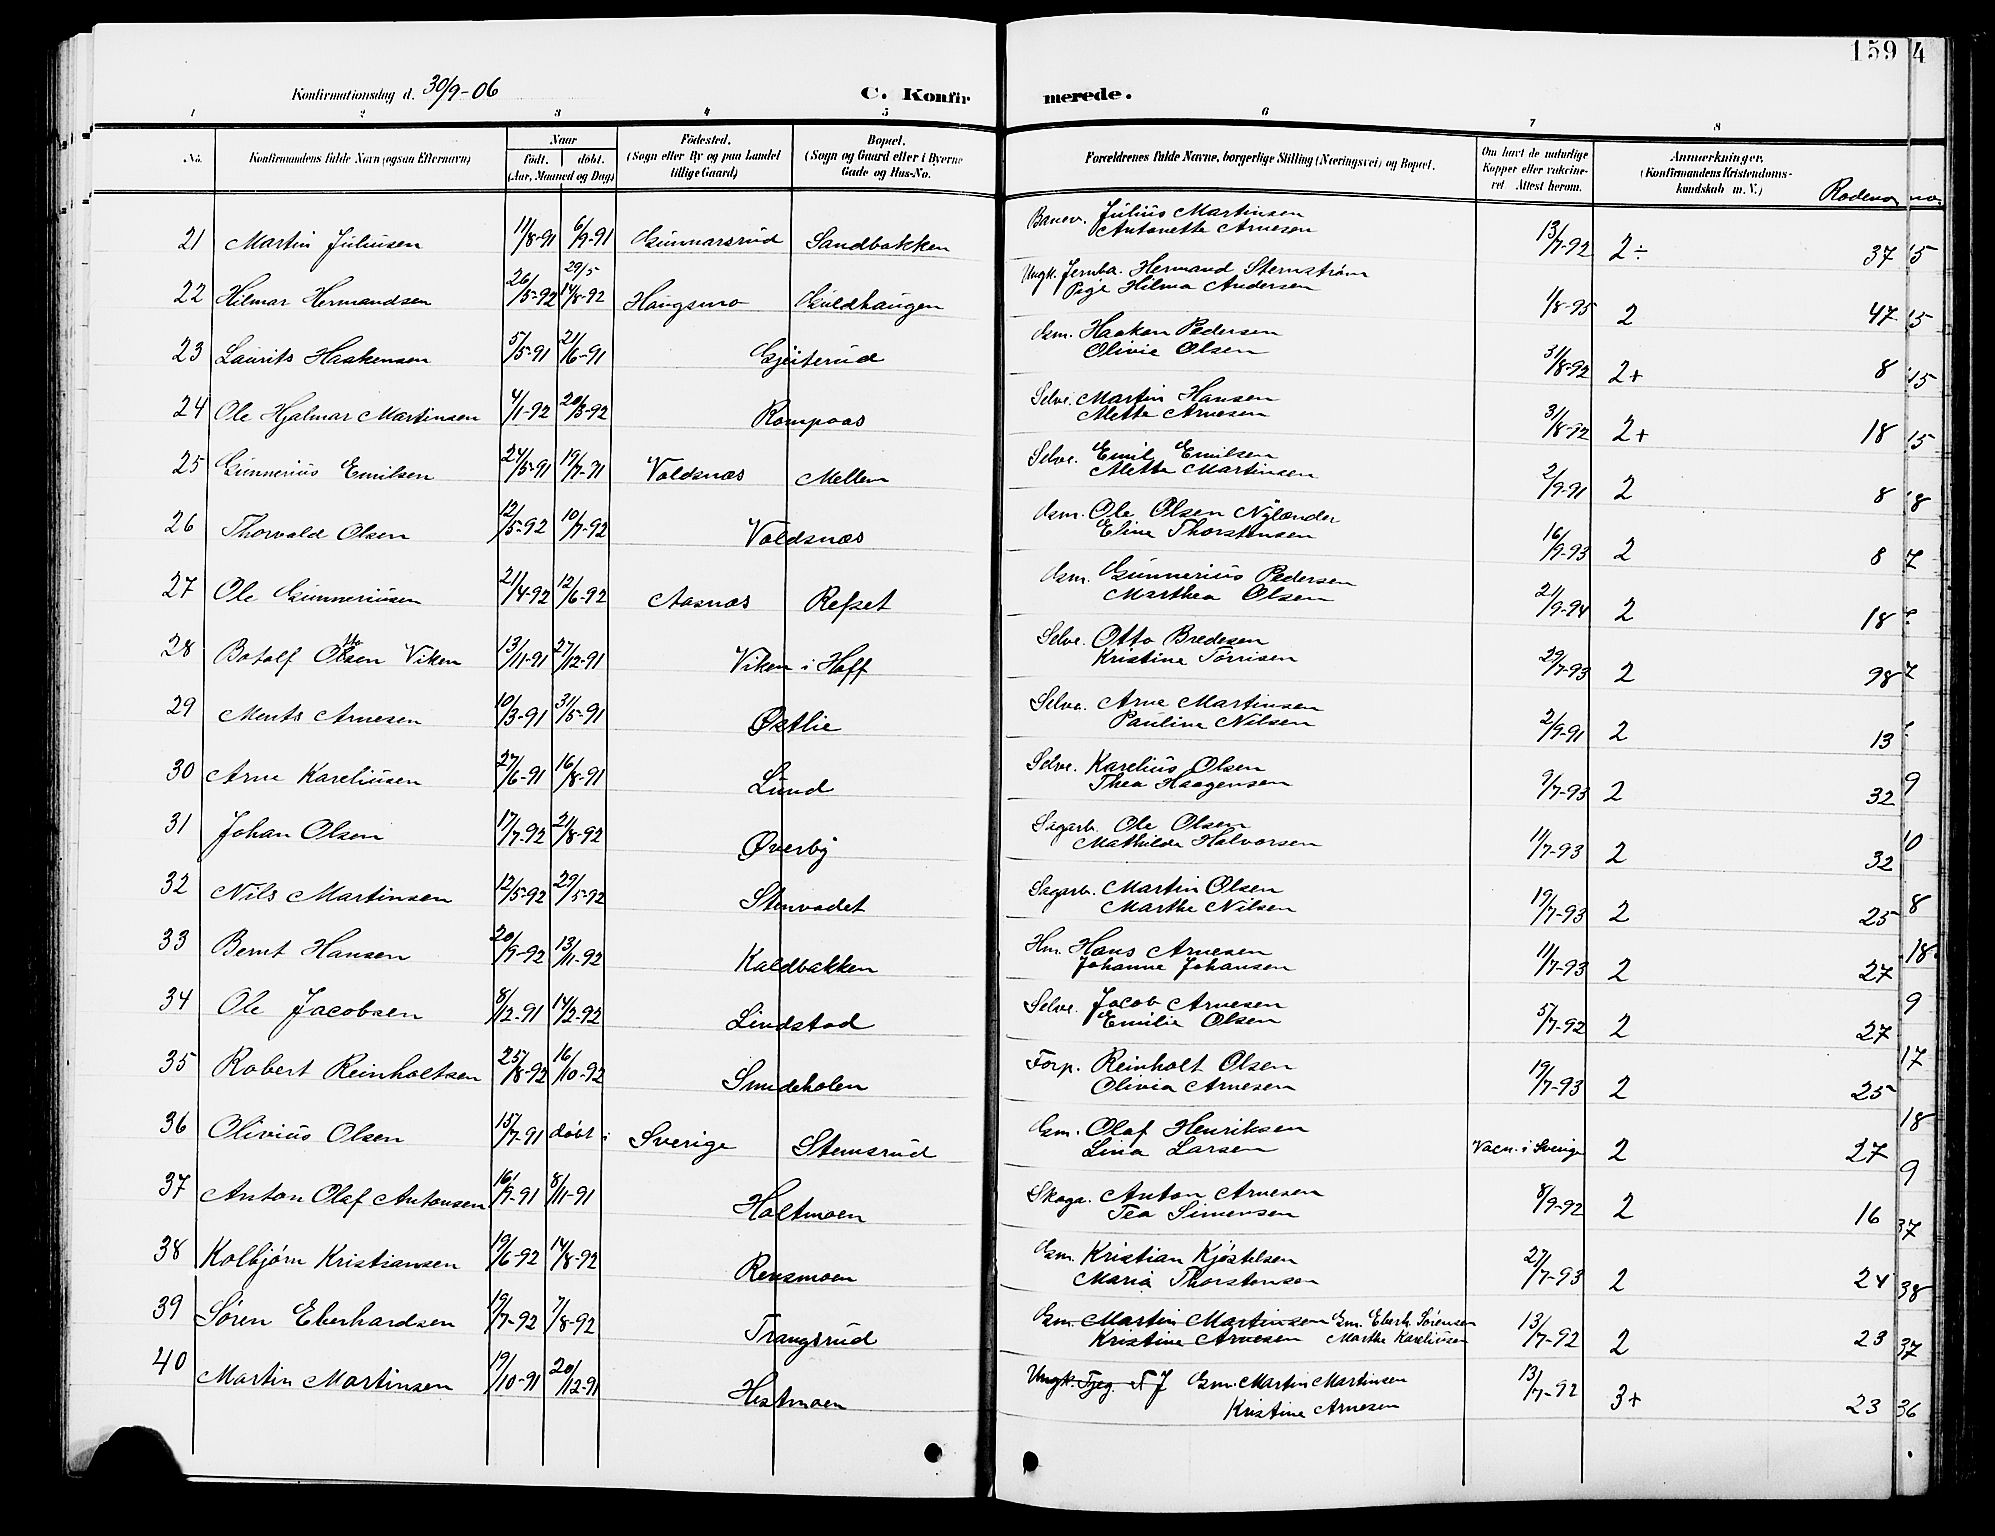 159 4
Konfirmationsdag d. 30/9-06
C. Konfirmerede.
1 2 3 4 5 6 7 8
No. Konfirmandens fulde Navn (ogsaa Efternavn) Naar født. døbt. (Aar, Maaned og Dag) Fødested. (Sogn eller By og paa Landet tillige Gaard) Bopæl. (Sogn og Gaard eller i Byerne Gade og Hus-No. Forældrenes fulde Navne, borgerlige Stilling (Næringsvei) og Bopæl. Om havt de naturlige Kopper eller vaccineret Attest herom. Anmærkninger. (Konfirmandens Kristendomskundskab m. V.) Rodeno
21 Martin Juliusen 11/8-91 6/9-91 Gunnarsrud Sandbakken Banev. Julius Martinsen Antonette Arnesen 13/7-92 2÷ 37 15
22 Hilmar Hermandsen 26/5-92 29/5 14/8-92 Haugsmo Guldhaugen Ungk. Jernba. Hermand Stemstrøm Pige Hilma Andersen 1/8-95 2 47 15
23 Laurits Haakensen 5/5-91 21/6-91 Gjeiterud Gsm. Haaken Pedersen Olivie Olsen 31/8-92 2+ 8 15
24 Ole Hjalmar Martinsen 4/1-92 20/3-92 Rompaas Selve. Martin Hansen Mette Arnesen 31/8-92 2+ 18 15
25 Gunnerius Emilsen 24/5-91 19/7-91 Valdsnæs Mellem Selve. Emil Emilsen Mette Martinsen 2/9-91 2 8 18
26 Thorvald Olsen 12/5-92 10/7-92 Valdsnæs Gsm. Ole Olsen Nylænder Eline Thorstensen 16/9-93 2 8 7
27 Ole Gunneriusen 21/4-92 12/6-92 Aasnæs Refset Gsm. Gunnerius Pedersen Marthea Olsen 21/9-94 2 18
28 Botolf Olsen Viken 13/11-91 27/12-91 Viken i Hoff Selve. Otto Bredesen Kristine Torrisen 29/7-93 2 98 7
29 Ments Arnesen 10/3-91 31/5-91 Østlie Selve. Arne Martinsen Pauline Nilsen 2/9-91 2 13
30 Arne Kareliusen 27/6-91 16/8-91 Lund Selve. Karelius Olsen Thea Haagensen 7/7-93 2 32 9
31 Johan Olsen 17/7-92 21/8-92 Øverby Sagarb. Ole Olsen Mathilde Halvorsen 11/7-93 2 32 10
32 Nils Martinsen 12/5-92 29/5-92 Stenvadet Sagarb. Martin Olsen Marthe Nilsen 19/7-93 2 25 8
33 Bernt Hansen 20/9-92 13/11-92 Kaldbakken Hm. Hans Arnesen Johanne Johansen 11/7-93 2 27 18
34 Ole Jacobsen 8/12-91 14/2-92 Lindstad Selve. Jacob Arnesen Emilie Olsen 5/7-92 2 27 9
35 Robert Reinholtsen 25/8-92 16/10-92 Smideholen Forp. Reinholt Olsen Olivia Arnesen 19/7-93 2 25 17
36 Olivius Olsen 15/7-91 døbt i Sverige Stemsrud Gsm. Olaf Henriksen Lina Larsen Vacn. i Sverige 2 27 18
37 Anton Olaf Antonsen 16/9-91 8/11-91 Holtmoen Skoga. Anton Arnesen Tea Simensen 8/9-92 2 16 9
38 Kolbjørn Kristiansen 19/6-92 14/8-92 Rensmoen Gsm. Kristian Kjøstelsen Maria Thorstensen 27/7-93 2 24 37
39 Søren Eberhardsen 19/7-92 7/8-92 Trangsrud Gsm. Martin Martinsen Kristine Arnesen Gm. Eberh. Sørensen Marthe Kareliusen 13/7-92 2 23 38 37
40 Martin Martinsen 19/10-91 20/12-91 Hestmoen Ungk. Tjeg. N J Gm. Martin Martinsen Kristine Arnesen 13/7-92 3+ 23 36